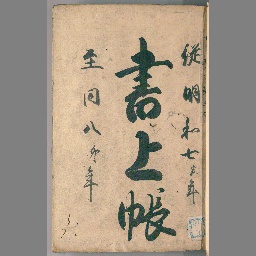 従明和七寅年
書上帳
至同八卯年